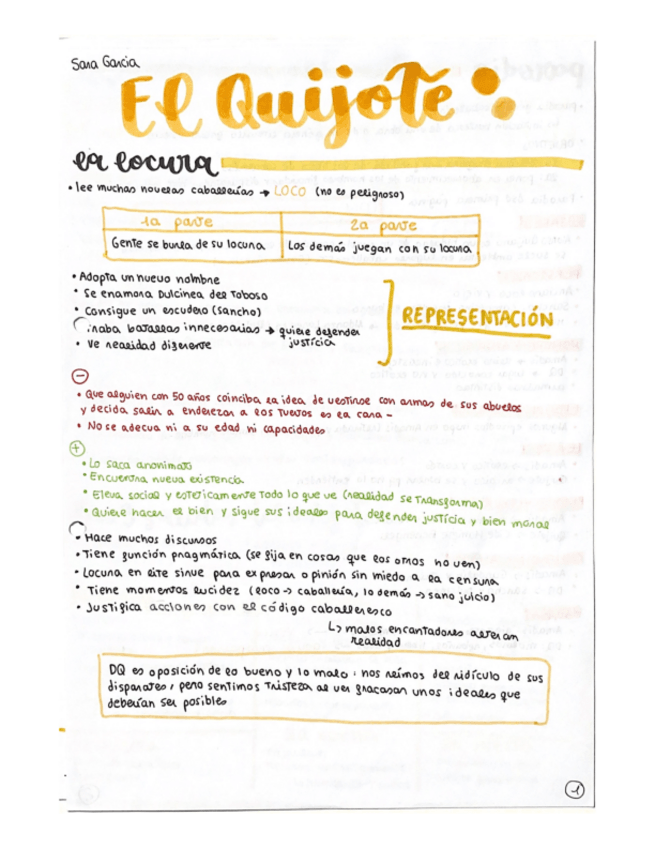 Sara García
El Quijote:
la locura
• lee muchas novelas caballerías → LOCO (no es peligroso)
1a parte 2a parte
Gente se burla de su locura Los demás juegan con su locura
• Adopta un nuevo nombre
• Se enamora Dulcinea del Toboso
• Consigue un escudero (Sancho)
batallas innecesarias → quiere defender
justícia
• Ve realidad diferente
REPRESENTACIÓN
⊖
• Que alguien con 50 años coinciba la idea de vestirse con armas de sus abuelos
y decida salir a enderezar a los tuertos es la cara -
• No se adecua ni a su edad ni capacidades
⊕
• Lo saca anonimato
• Encuentra nueva existencia
• Eleva social y esteticamente todo lo que ve (realidad se transforma)
• Quiere hacer el bien y sigue sus ideales para defender justícia y bien moral
• Hace muchos discursos
• Tiene función pragmática (se fija en cosas que los otros no ven)
• Locura en él le sirve para expresar opinión sin miedo a la censura
• Tiene momentos lucidez (loco → caballería, lo demás → sano juicio)
• Justifica acciones con el código caballeresco
↳ malos encantadores alteran
realidad
DQ es oposición de lo bueno y lo malo: nos reímos del ridículo de sus
disparates, pero sentimos tristeza al ver fracasar unos ideales que
deberían ser posibles
1